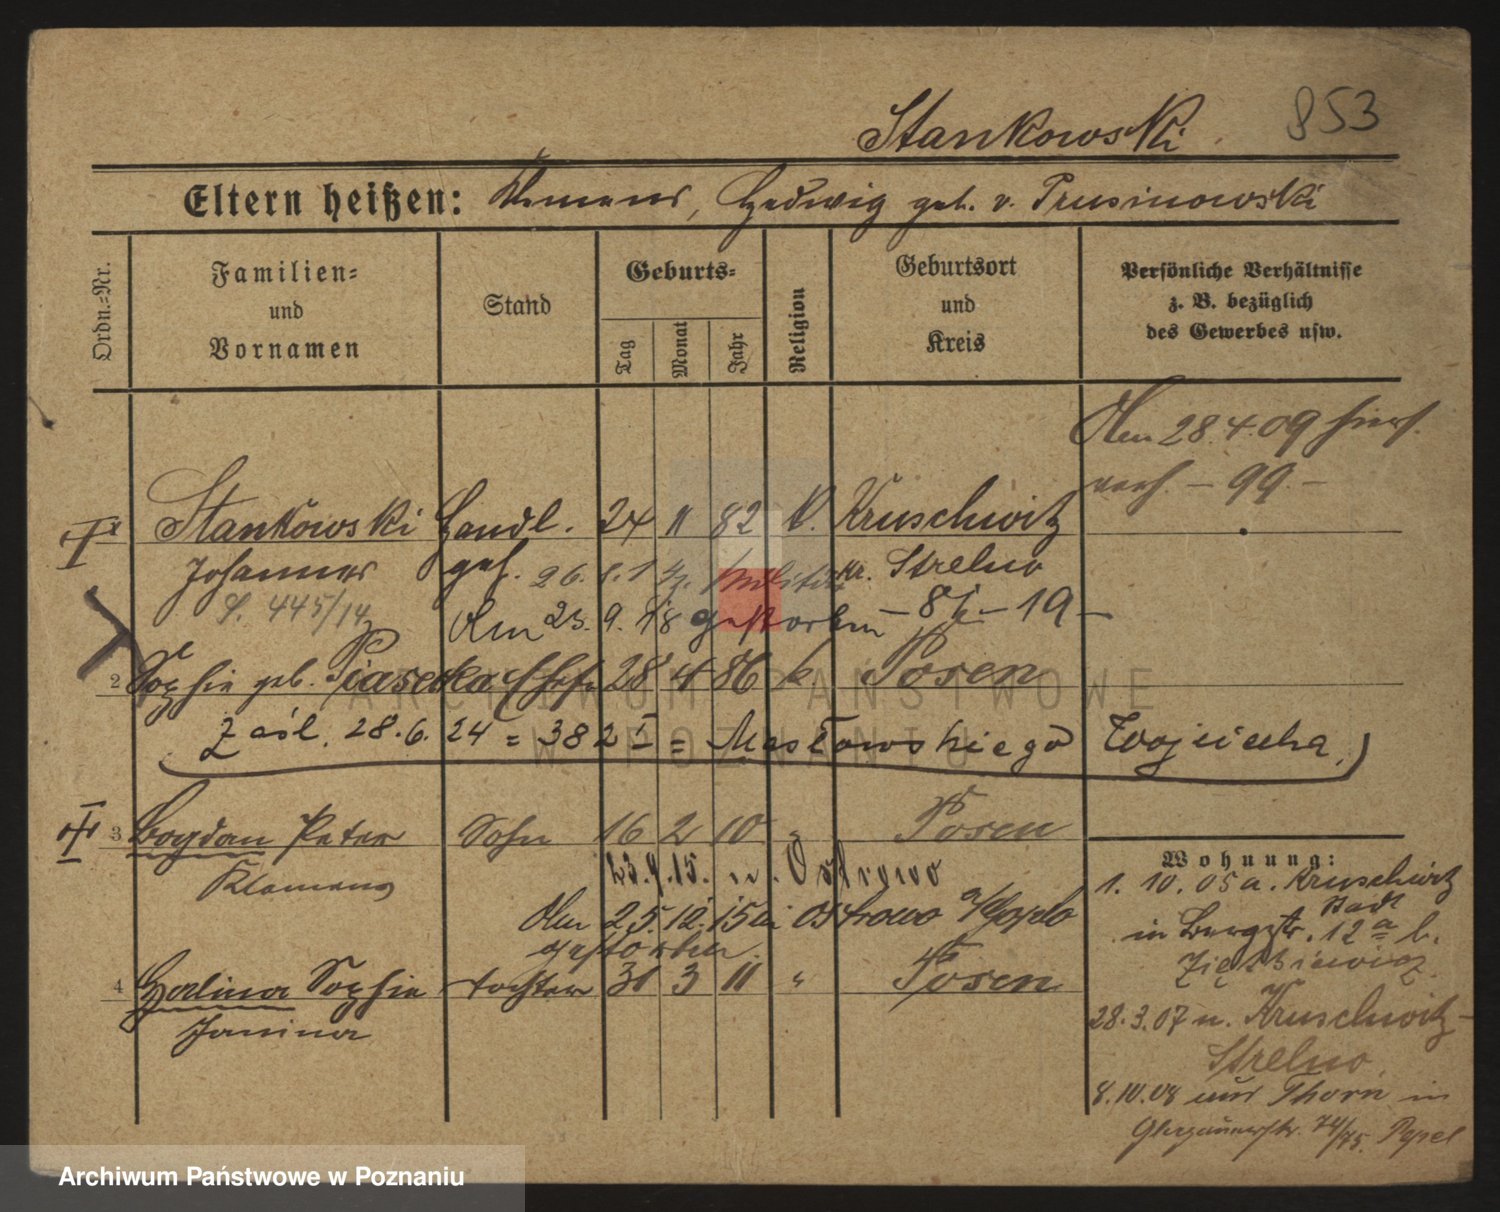 853
Stankowski
Eltern heißen: Klemens, Hedwig geb. v. Prusinowski
Ordn.=Nr.
Familien=
und
Vornamen
Stand
Geburts=
Tag
Monat
Jahr
Religion
Geburtsort
und
Kreis
Persönliche Verhältnisse
z. B. bezüglich
des Gewerbes usw.
Am 28.4.09 hier
verh. — 99 —
Stankowski Handl. 24 11 82 k. Kruschwitz
Johannes geh. 26.8.14 z. Militär Kr. Strelno
S. 445/14
Am 23. 9. 18 gestorben — 8 — 19 —
2 Sophie geb. Piasecka Ehefr 28 4 86 k. Posen
Zaśl. 28.6.24 = 382 I = Masłowskiego Wojciecha
3 Bogdan Peter Sohn 16 2 10 " Posen
Klemens
23.9.15. n. Ostrowo
Am 25.12.15 in Ostrowo
gestorben.
4 Halina Sophie Tochter 31 3 11 " Posen
Janina
Wohnung:
1. 10. 05 a. Kruschwitz
Stadt
in Bergstr. 12a b.
Ziętkiewicz
28.3.07 n. Kruschwitz-
Strelno
8.10.08 aus Thorn in
74/75.
ARCHIWUM PAŃSTWOWE
W POZNANIU
Archiwum Państwowe w Poznaniu